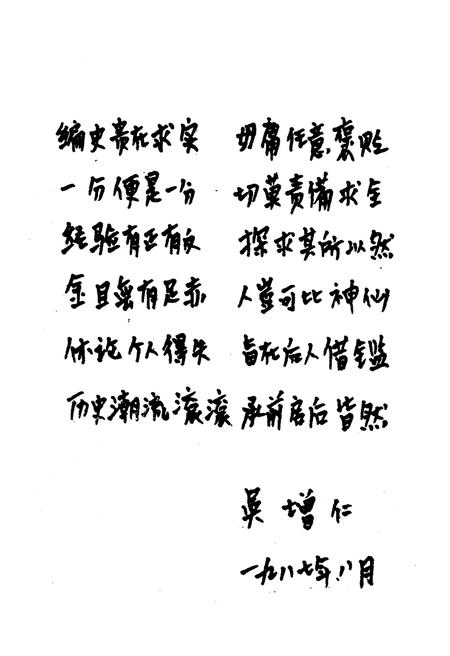 编史贵在求实 切庸任意褒贬
一分便是一分 切莫责備求全
经验有正有反 探求其所以然
金且無有足赤 人豈可比神仙
休论个人得失 旨在后人借鑑
历史潮流滚滚 承前启后皆然
吴增仁
一九八七年八月